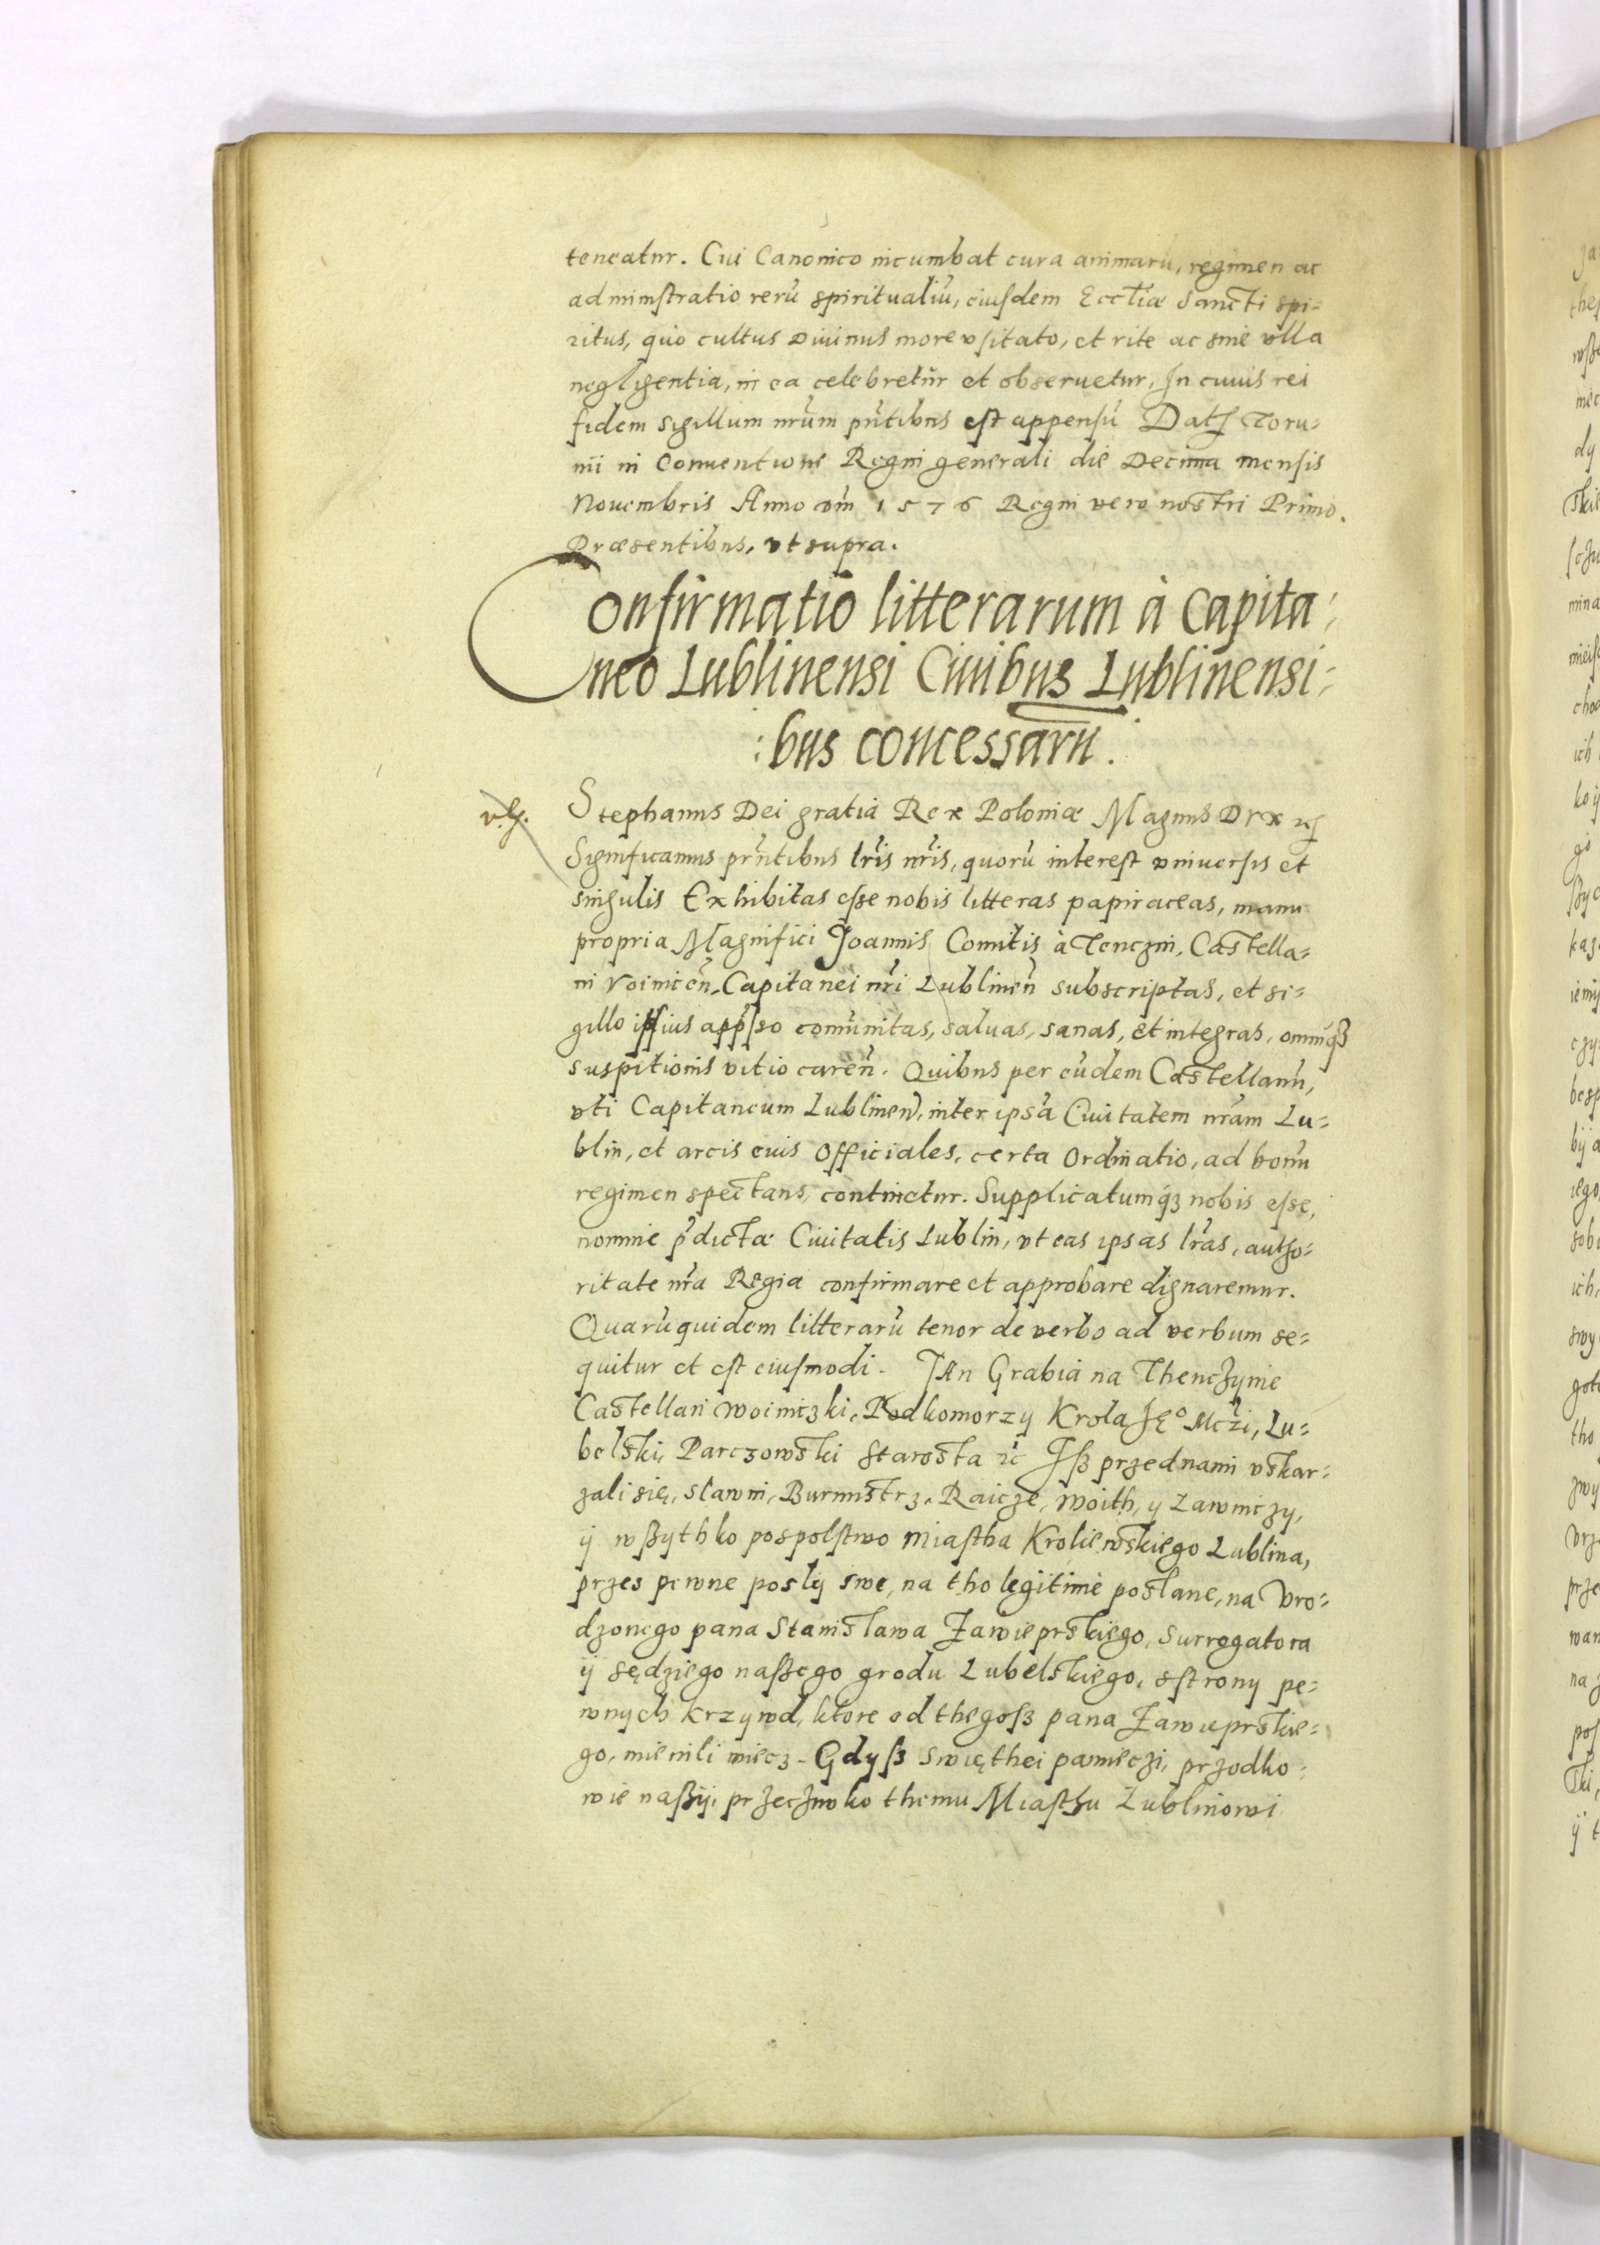 teneatur. Cui Canonico incumbat cura animarū, regimen ac
administratio rerū spiritualiū, eiusdem Eccl̃iæ Sancti Spi-
ritus, quo cultus Diuinus more vsitato, et rite ac sine vlla
negligentia, in ea celebretur et obseruetur, In cuius rei
fidem sigillum nr̃um pñtibus est appensū Datꝭ Toru-
nii in Conuentione Regni generali die Decima mensis
Nouembris Anno Dñi 1576 Regni vero nostri Primo.
Præsentibus, vt supra.
Confirmatio litterarum à Capita-
neo Lublinensi Ciuibus Lublinensi-
:bus concessarū.
Stephanus Dei gratia Rex Poloniæ Magnus Dux ꝛcꝭ
Significamus pr̃ntibus lr̃is nr̃is, quorū interest vniuersis et
singulis Exhibitas esse nobis litteras papiraceas, manu
propria Magnifici Joannis Comitis à Tenczin, Castella-
ni Voinicen̄, Capitanei nr̃i Lublinen̄ subscriptas, et si-
gillo ipsius app̃sso com̄unitas, saluas, sanas, et integras, omniq́ꝫ
suspitionis vitio caren̄. Quibus per eūdem Castellanū,
vti Capitaneum Lublinen̄, inter ipsā Ciuitatem nr̃am Lu-
blin, et arcis eius Officiales, certa Ordinatio, ad bonū
regimen spectans, continetur. Supplicatumq́ꝫ nobis esse,
nomine p̃dictæ Ciuitatis Lublin, vt eas ipsas lr̃as, autho-
ritate nr̃a Regia confirmare et approbare dignaremur.
Quarū quidem litterarū tenor de verbo ad verbum se-
quitur et est eiusmodi. JAn Grabia na Thenczynie
Castellan woiniczki, Podkomorzy Krola Jęº Mczi, Lu-
belski, Parczowski Starosta ꝛc̃ Jß przed nami vskar-
zali się, sławni, Burmistrz, Raicze, woith, y Ławniczy,
ij wßythko pospolstwo Miastha Krolewskiego Lublina,
przes pewne posly swe, na tho legitime posłane, na Vro-
dzonego pana Stanisława Zawieprskiego, Surrogatora
ij sędziego naßego grodu Lubelskiego, sstrony pe-
wnych krzywd, ktore od thegoß pana Zawieprskie-
go, mienili miecz. Gdyß swięthei pamieczi, przodko-
wie naßij, przeczwko themu Miasthu Lublinowi